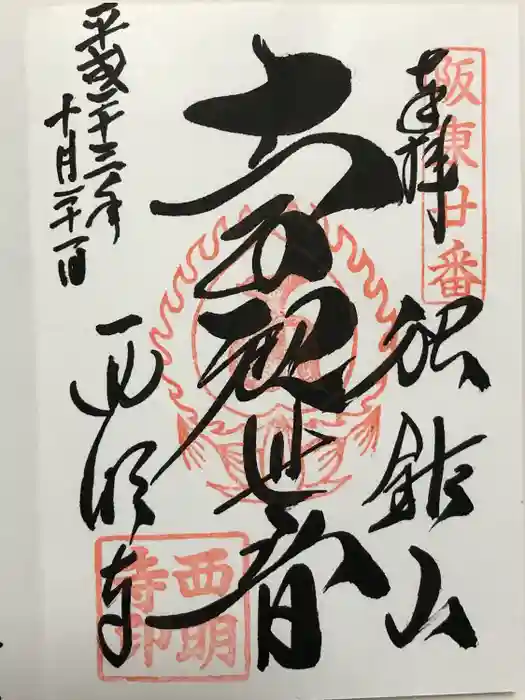 阪東廿番
奉拝
独鈷山
十一面観世音
西明寺
西明寺印
平成二十三年
十月二十一日